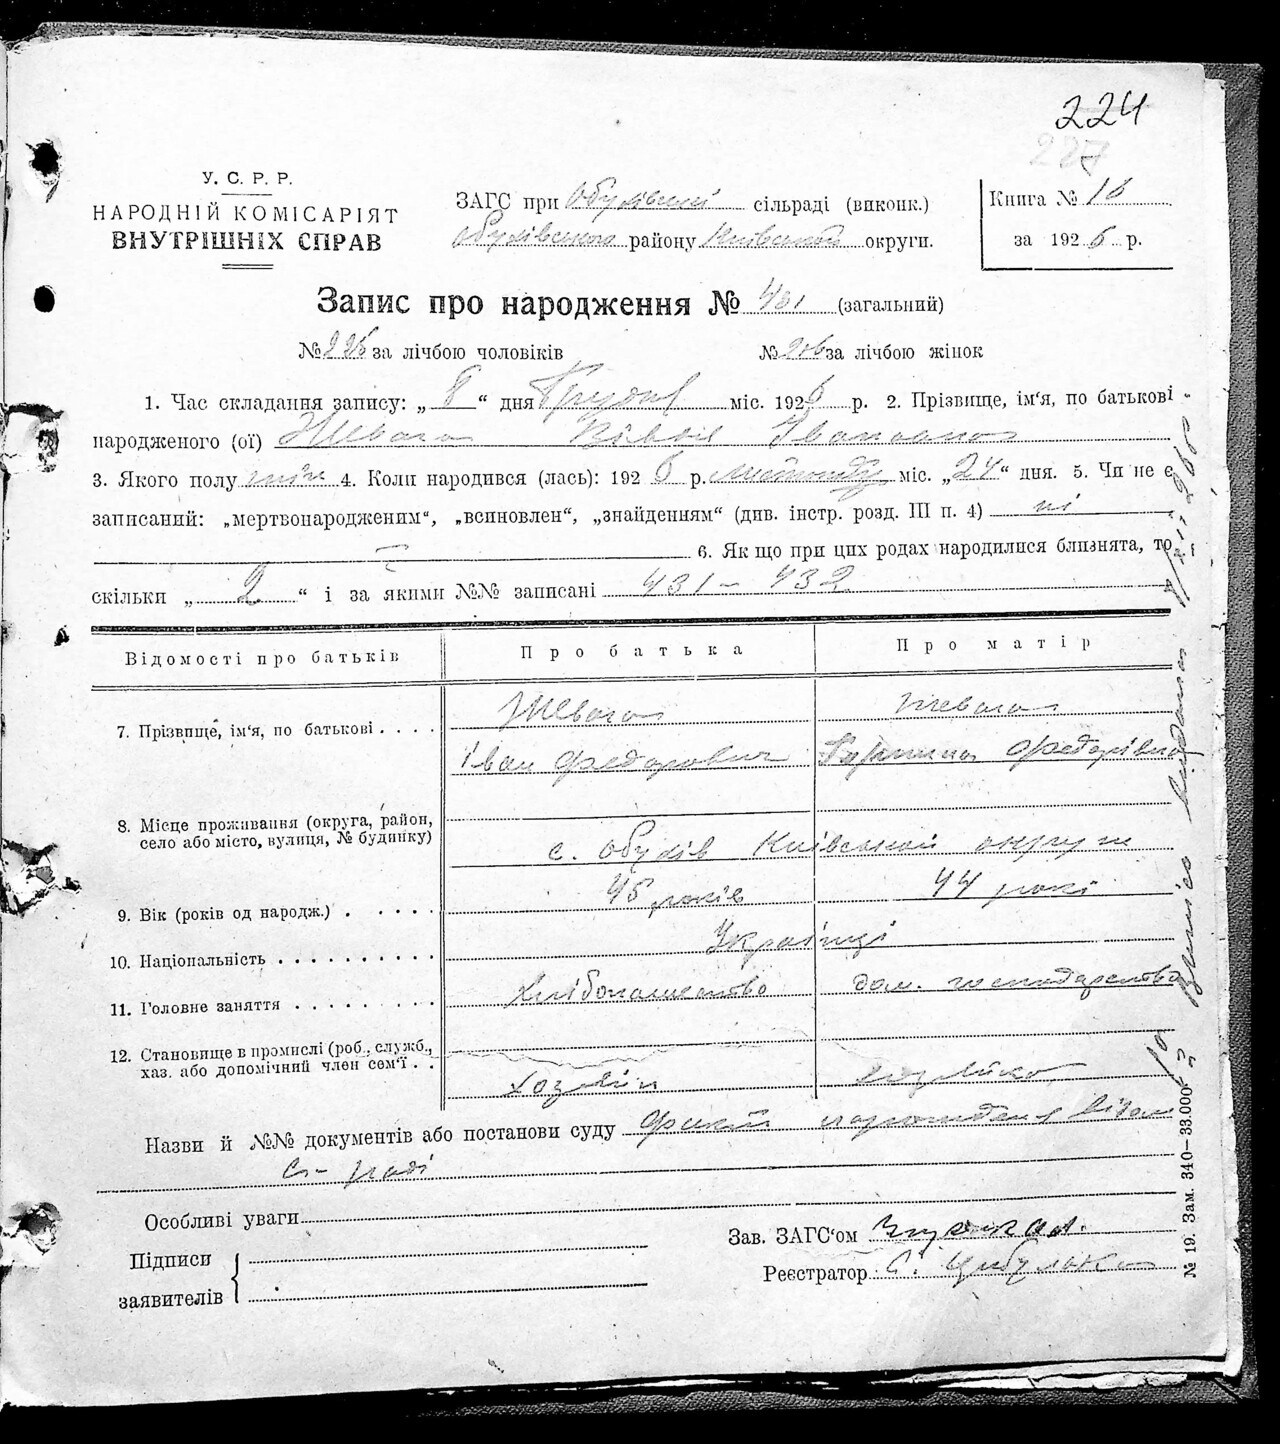 224
227
У. С. Р. Р.
НАРОДНІЙ КОМІСАРІЯТ
ВНУТРІШНІХ СПРАВ
ЗАГС при Обухівській сільраді (виконк.)
Обухівського району Київської округи.
Книга № 16
за 1926 р.
Запис про народження № 431 (загальний)
№ 225 за лічбою чоловіків
№ 206 за лічбою жінок
1. Час складання запису: „ 8 “ дня Грудня міс. 1926 р. 2. Прізвище, ім'я, по батькові
народженого (ої) Швага Іванівна
3. Якого полу жін 4. Коли народився (лась): 1926 р. Листопаду міс. „24“ дня. 5. Чи не є
записаний: „мертвонародженим“, „всиновлен“, „знайденням“ (див. інстр. розд. III п. 4) ні
6. Як що при цих родах народилися близнята, то
скільки „ 2 “ і за якими №№ записані 431 – 432
Відомості про батьків
Про батька
Про матір
7. Прізвище, ім'я, по батькові . . . .
Іван Федорович
Федорівна
8. Місце проживання (округа, район,
село або місто, вулиця, № будинку)
с. Обухів Київської округи
9. Вік (років од народж.) . . . . .
45 років
44 роки
10. Національність . . . . . . . . . .
Українці
11. Головне заняття . . . . . . . .
Хлібопашество
дом. господарство
12. Становище в промислі (роб., служб.,
хаз. або допомічний член сем'ї . .
Хазяїн
Хазяйка
Назви й №№ документів або постанови суду народження відом
сі- раді
Особливі уваги
Підписи
заявителів
Зав. ЗАГС'ом
Реєстратор С. Цибулько
№ 19. Зам. 340—33.000